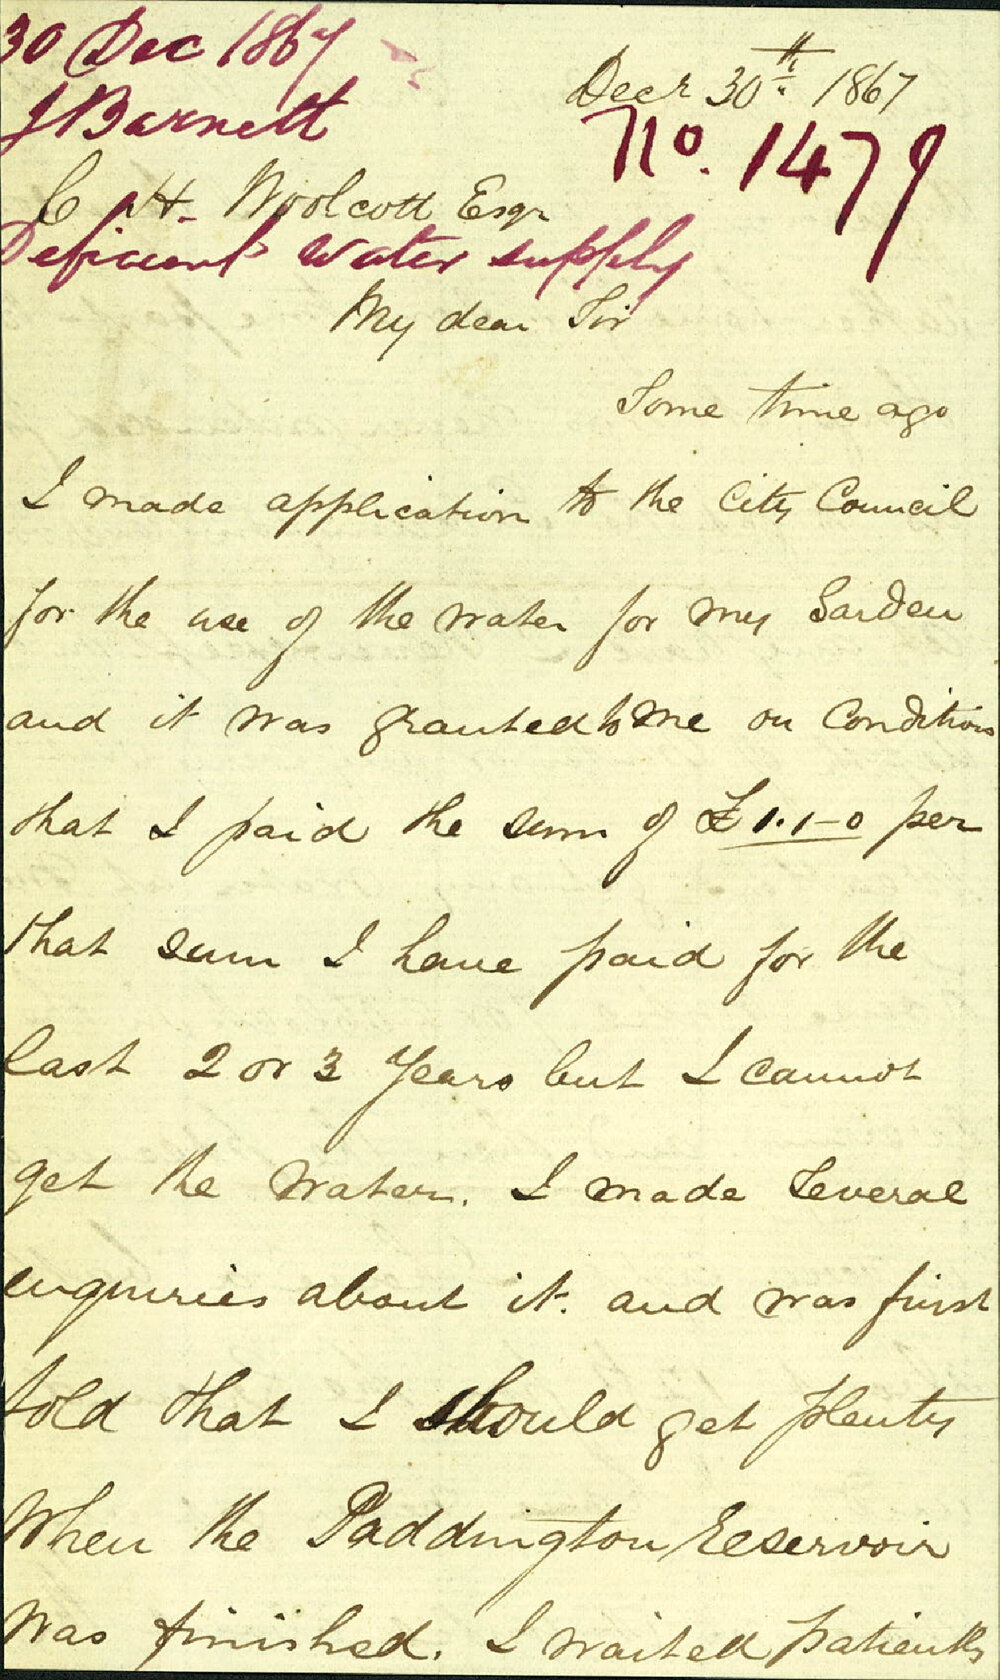 30 Dec 1867
Decr 30th 1867
J Barnett
No. 1479
C H. Woolcott Esqr
Deficient water supply
My dear Sir
Some time ago
I made application to the City Council
for the use of the water for my Garden
and it was granted to me on Conditions
that I paid the sum of £1.1-0 per
that sum I have paid for the
last 2 or 3 Years but I cannot
get the water. I made several
enquiries about it. and was first
told that I should get plenty
When the Paddington Reservoir
was finished. I waited patiently